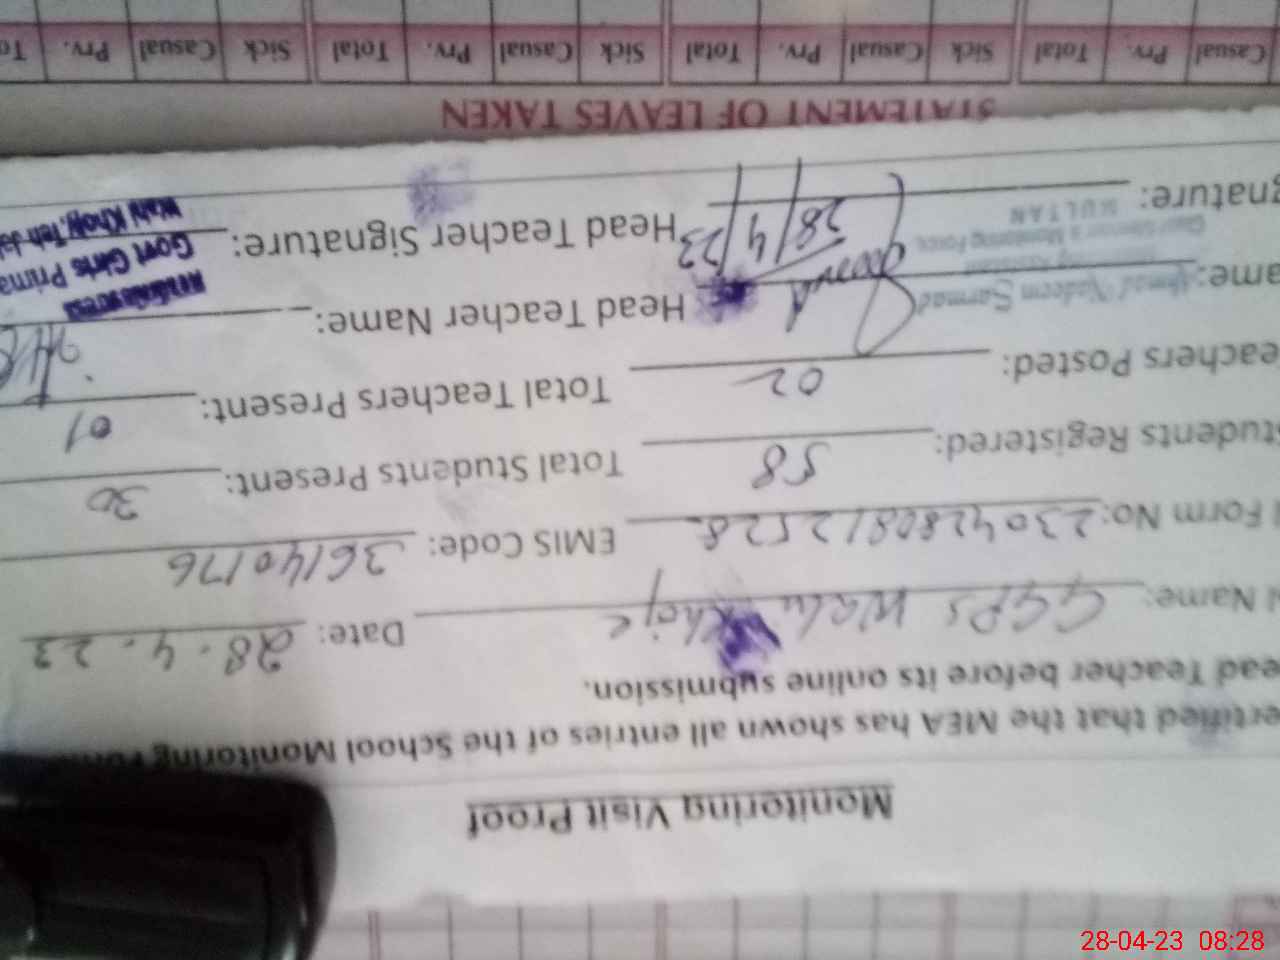 Monitoring Visit Proof
ertified that the MEA has shown all entries of the School Monitoring
ead Teacher before its online submission.
Name: GGPS Wahi Khoje Date: 28.4.23
Form No: 2304280812528 EMIS Code: 36140176
tudents Registered: 58 Total Students Present: 30
eachers Posted: 02 Total Teachers Present: 01
ame: Nadeem Sarmad Head Teacher Name:
gnature: MULTAN 28/4/23 Head Teacher Signature:
Govt Girls Prima
Wahi Khoje, Teh
STATEMENT OF LEAVES TAKEN
To Prv. Casual Sick Total Prv. Casual Sick Total Prv. Casual Sick Total Prv. Casual
28-04-23 08:28